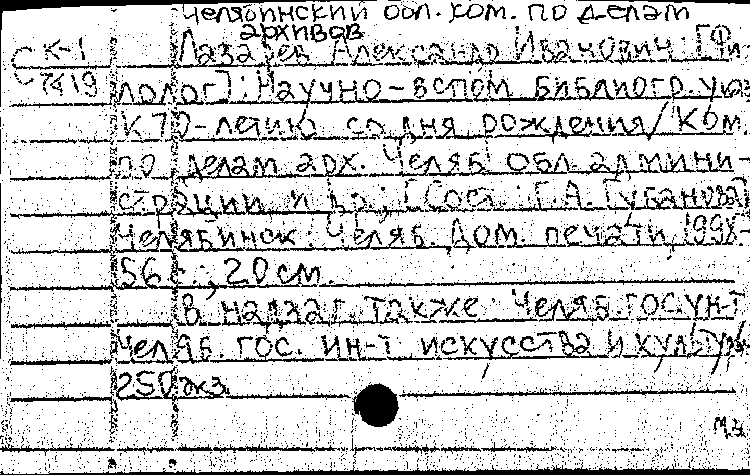 Челябинский обл. ком. по делам
архивов
К-1 Лазарев Александр Иванович: [Фи-
7419 лолог]: Научно-вспом библиогр. указ
К 70-летию со дня рождения/Ком.
по делам арх. Челяб обл. админи-
страции и др.; [Сост.: Г.А. Губанова]
Челябинск: Челяб. Дом. печати, 1998-
56 с.; 20 см.
В надзаг. также: Челяб. гос. ун-т
Челяб. гос. ин-т искусства и культуры
250 экз.